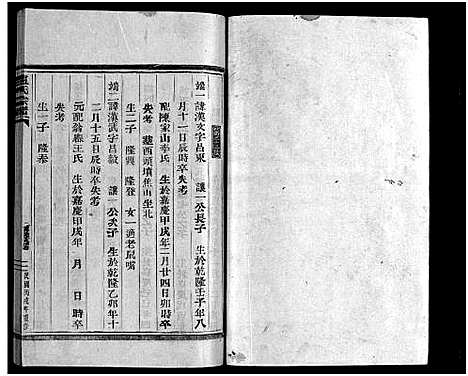 端一諱漢文字呂東 讓一公長子 生於乾隆壬子年八
月十一日辰時卒失考
配陳家山李氏 生於嘉慶甲戌年二月廿四日卯時卒
失考 葬西頭墳蕉山坐北
生二子 隆興 隆登 女一適老鼠嘴
端二諱漢武字呂敏 讓一公次子 生於乾隆乙卯年十
二月十五日辰時失考
元配翁㙟王氏 生於嘉慶甲戌年 月 日時卒
失考
生一子 隆泰